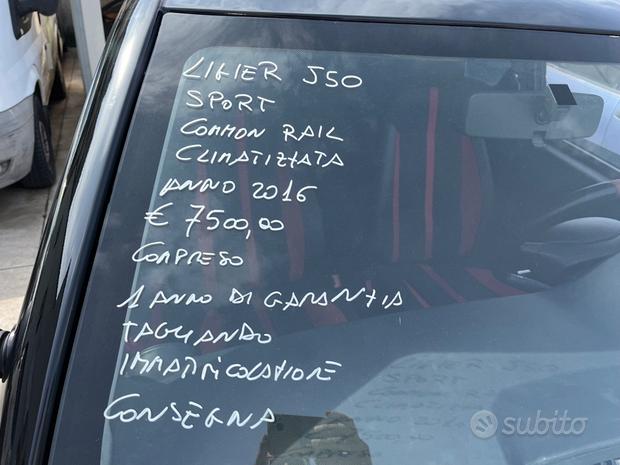 LIGIER JS50
SPORT
COMMON RAIL
CLIMATIZZATA
ANNO 2016
€ 7500,00
COMPRESO
1 ANNO DI GARANZIA
TAGLIANDO
IMMATRICOLAZIONE
CONSEGNA
subito